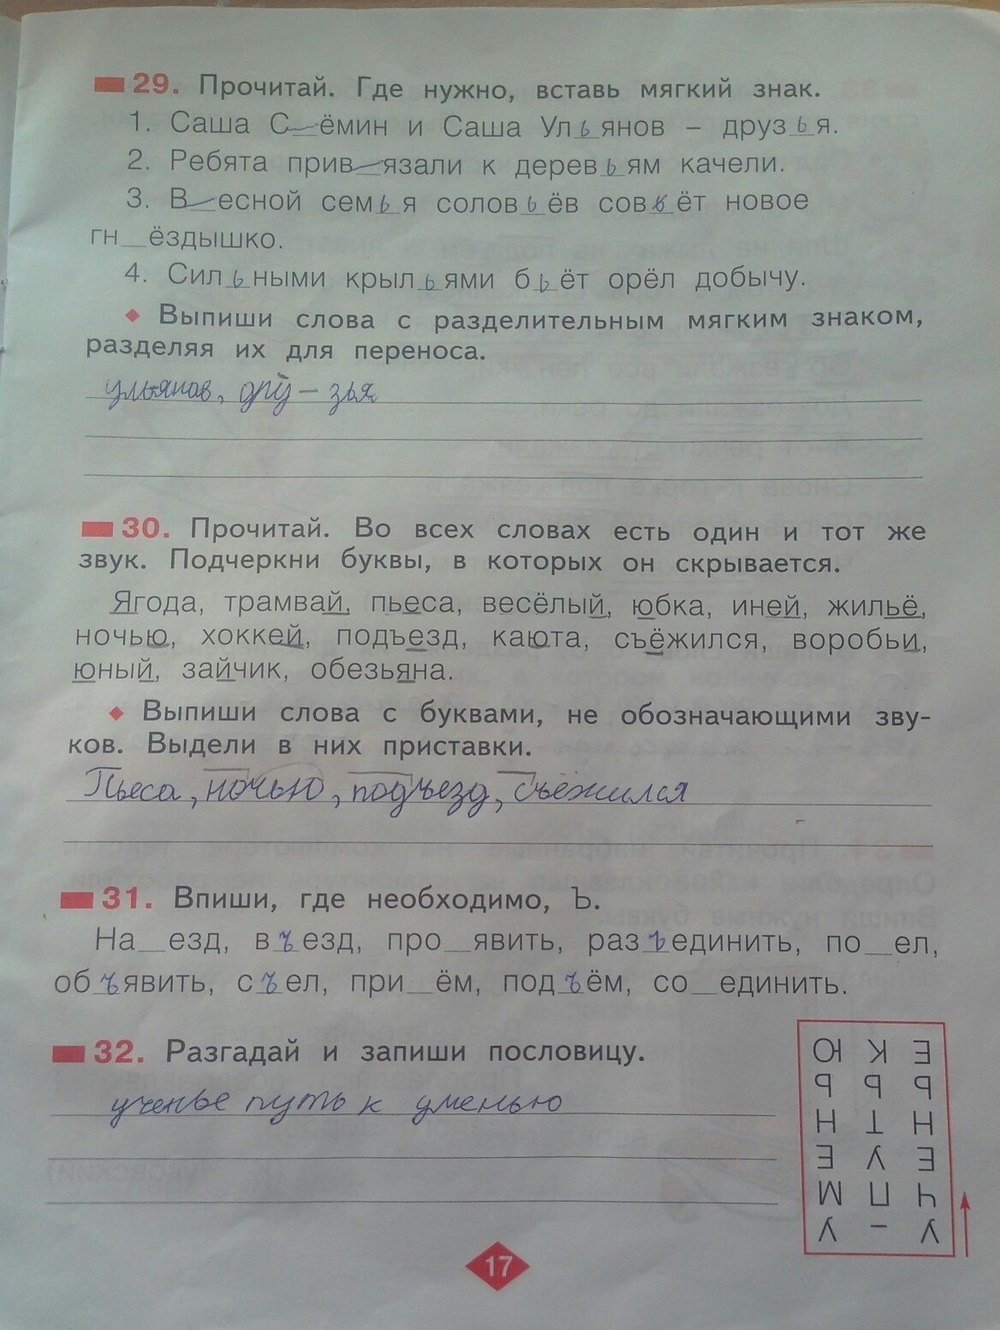 29. Прочитай. Где нужно, вставь мягкий знак.
1. Саша С_ёмин и Саша Ульянов – друзья.
2. Ребята прив_язали к деревьям качели.
3. В_есной семья соловьёв совьёт новое
гн_ёздышко.
4. Сильными крыльями бьёт орёл добычу.
◆ Выпиши слова с разделительным мягким знаком,
разделяя их для переноса.
ульянов, дру – зья
30. Прочитай. Во всех словах есть один и тот же
звук. Подчеркни буквы, в которых он скрывается.
Ягода, трамвай, пьеса, весёлый, юбка, иней, жильё,
ночью, хоккей, подъезд, каюта, съёжился, воробьи,
юный, зайчик, обезьяна.
◆ Выпиши слова с буквами, не обозначающими зву-
ков. Выдели в них приставки.
Пьеса, ночью, подъезд, съёжился
31. Впиши, где необходимо, Ъ.
На_езд, въезд, про_явить, разъединить, по_ел,
объявить, съел, при_ём, подъём, со_единить.
32. Разгадай и запиши пословицу.
ученье путь к уменью
Ю К Е
Ь Ь Ь
Н Т Н
Е У Е
М П Ч
У – У
17